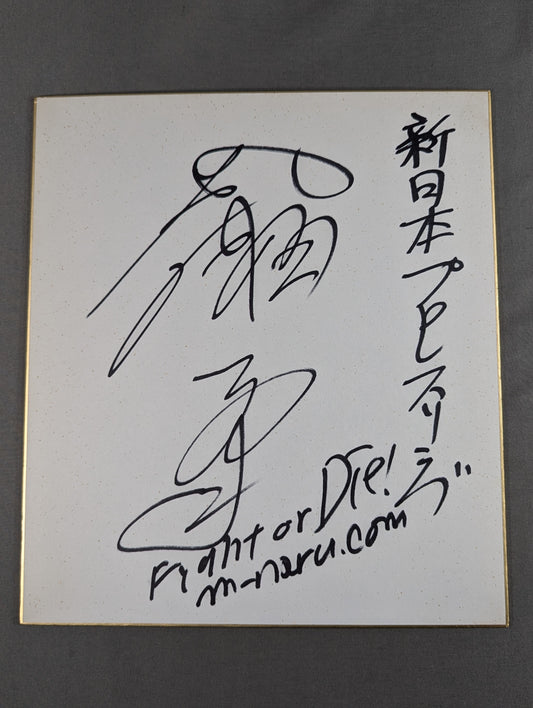 新日本プロレスリング
Fight or Die!
m-naru.com